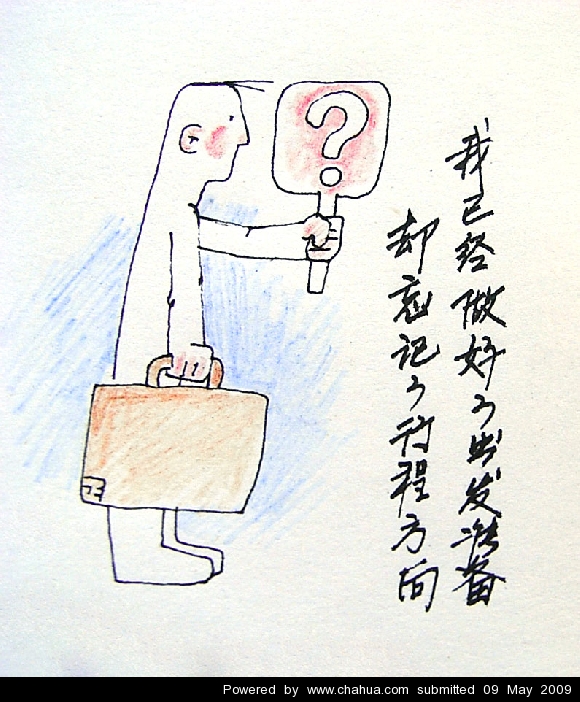 我已经做好了出发准备
却忘记了行程方向
?
Powered by www.chahua.com submitted 09 May 2009